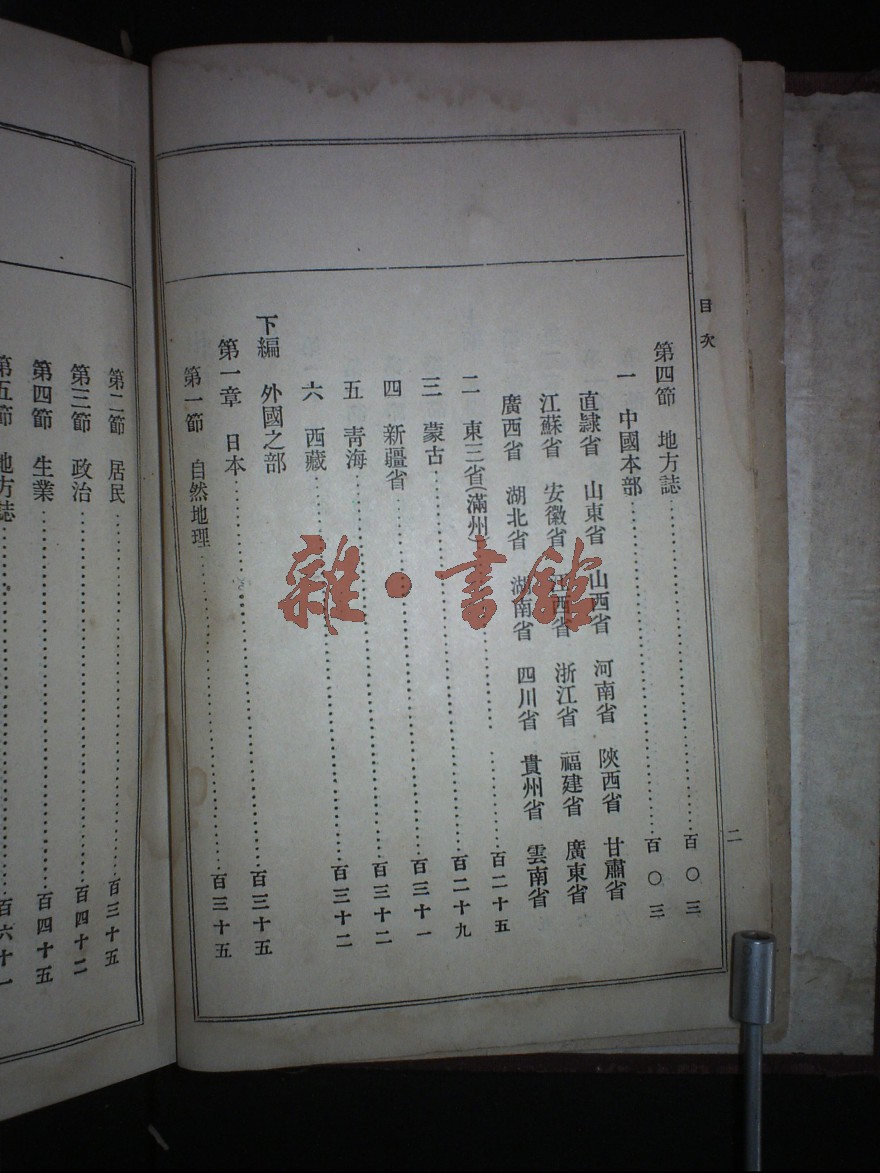 目次
二
第四節 地方誌……百〇三
一 中國本部……百〇三
直隷省 山東省 山西省 河南省 陝西省 甘肅省
江蘇省 安徽省 西省 浙江省 福建省 廣東省
廣西省 湖北省 湖南省 四川省 貴州省 雲南省
二 東三省(滿州)……百二十五
三 蒙古……百二十九
四 新疆省……百三十一
五 靑海……百三十二
六 西藏……百三十二
下編 外國之部
第一章 日本……百三十五
第一節 自然地理……百三十五
第二節 居民……百三十五
第三節 政治……百四十二
第四節 生業……百四十五
第五節 地方誌……百六十一
雜·書館